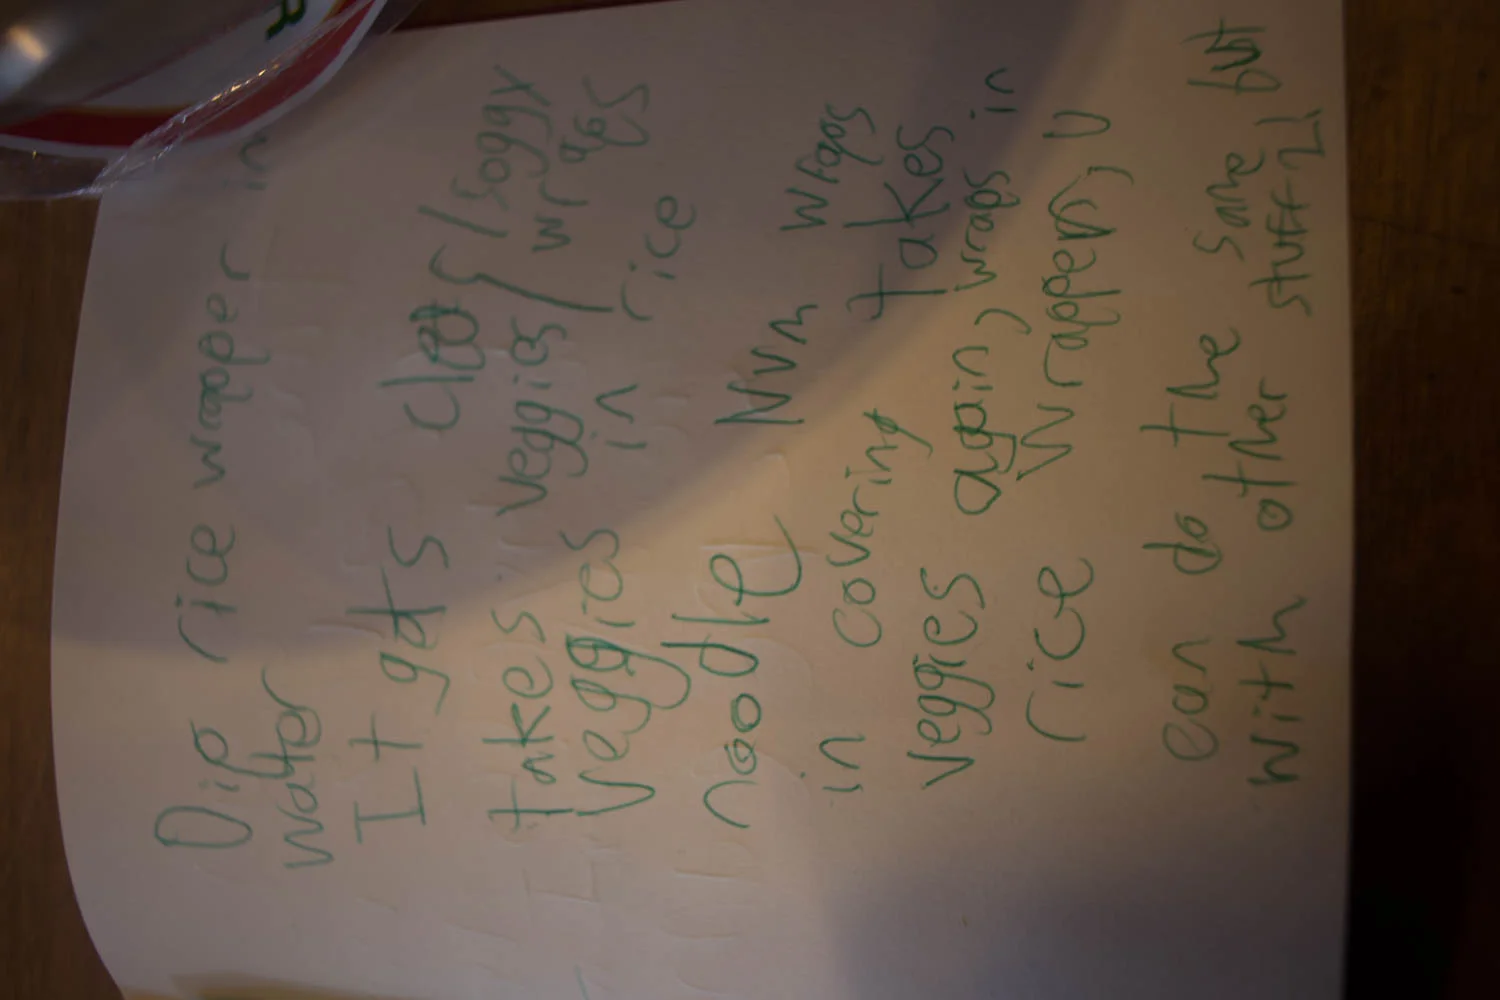 R
Dip rice wrapper in
water
It gets clear/soggy
takes veggies/wraps
veggies in rice
noodle Nvm wraps
in covering takes
veggies again, wraps in
rice wrapper, U
can do the same but
with other stuff 2!